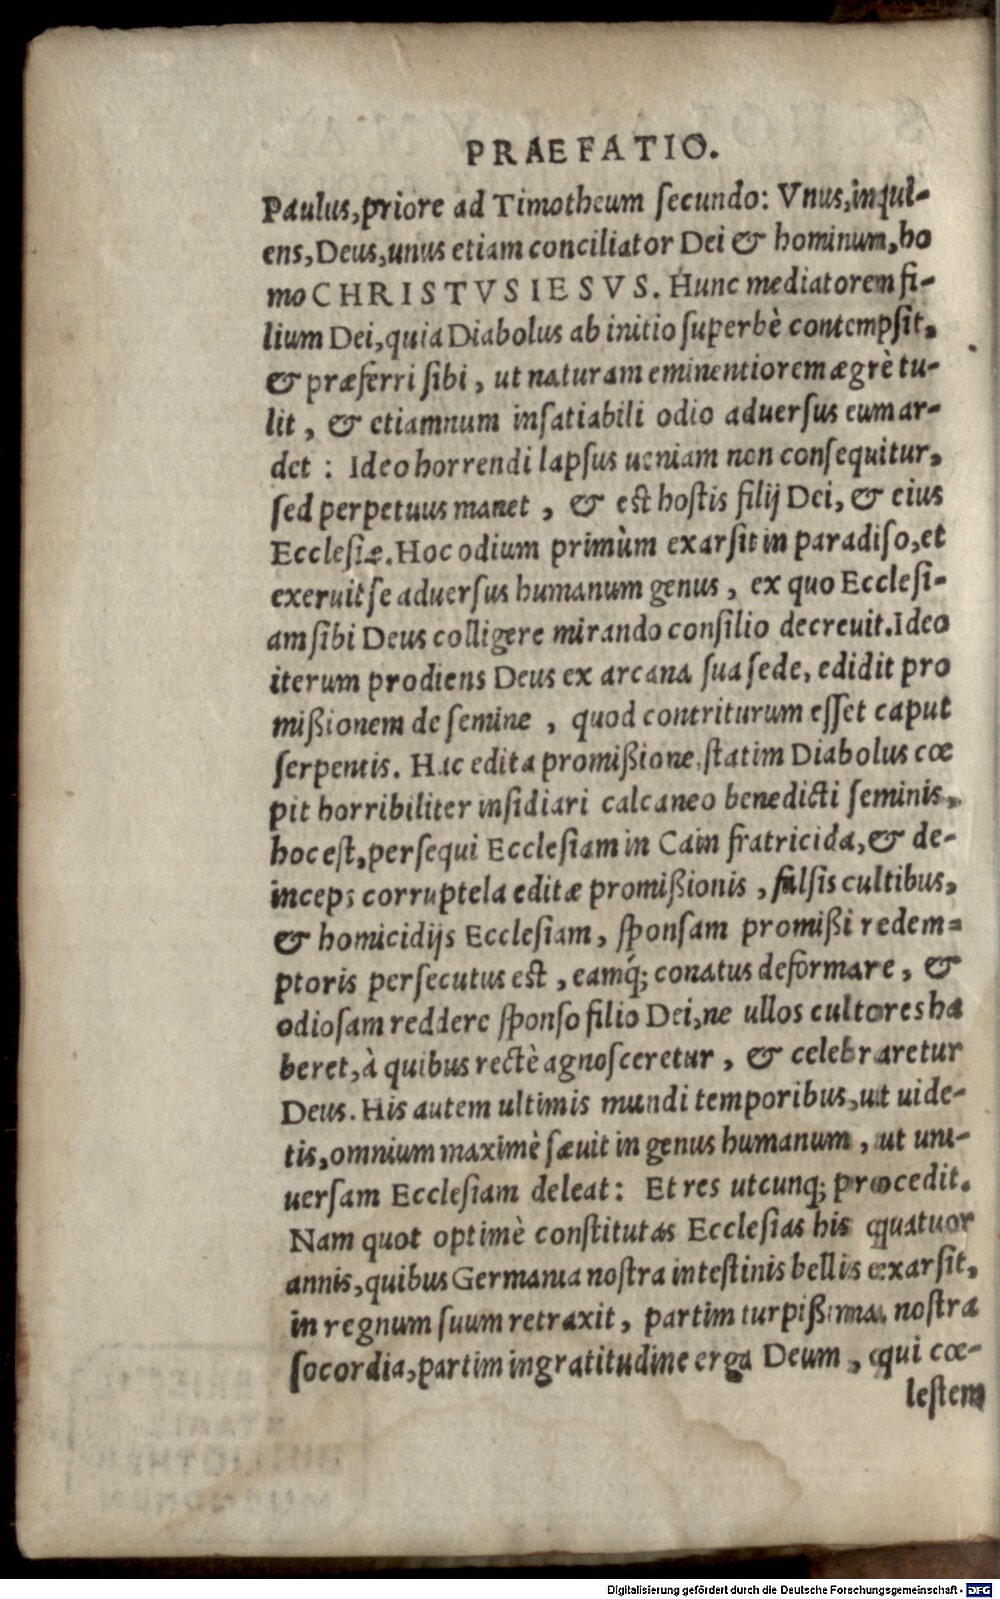 PRAEFATIO.
Paulus, priore ad Timotheum secundo: Vnus, inqui-
ens, Deus, unus etiam conciliator Dei & hominum, ho
mo CHRISTVS IESVS. Hunc mediatorem fi-
lium Dei, quia Diabolus ab initio superbè contempsit,
& præferri sibi, ut naturam eminentiorem ægrè tu-
lit, & etiamnum insatiabili odio aduersus eum ar-
det: Ideo horrendi lapsus ueniam non consequitur,
sed perpetuus manet, & est hostis filij Dei, & eius
Ecclesiæ. Hoc odium primùm exarsit in paradiso, et
exeruit se aduersus humanum genus, ex quo Ecclesi-
am sibi Deus colligere mirando consilio decreuit. Ideo
iterum prodiens Deus ex arcana sua sede, edidit pro
mißionem de semine, quod contriturum esset caput
serpentis. Hac edita promißione, statim Diabolus cœ
pit horribiliter insidiari calcaneo benedicti seminis,
hoc est, persequi Ecclesiam in Cain fratricida, & de-
inceps corruptela editæ promißionis, falsis cultibus,
& homicidijs Ecclesiam, sponsam promißi redem=
ptoris persecutus est, eamq́; conatus deformare, &
odiosam reddere sponso filio Dei, ne ullos cultores ha
beret, à quibus rectè agnosceretur, & celebraretur
Deus. His autem ultimis mundi temporibus, ut uide-
tis, omnium maximè sæuit in genus humanum, ut uni-
uersam Ecclesiam deleat: Et res utcunq; procedit.
Nam quot optimè constitutas Ecclesias his quatuor
annis, quibus Germania nostra intestinis bellis exarsit,
in regnum suum retraxit, partim turpißima nostra
socordia, partim ingratitudine erga Deum, qui cœ-
lestem
Digitalisierung gefördert durch die Deutsche Forschungsgemeinschaft - DFG